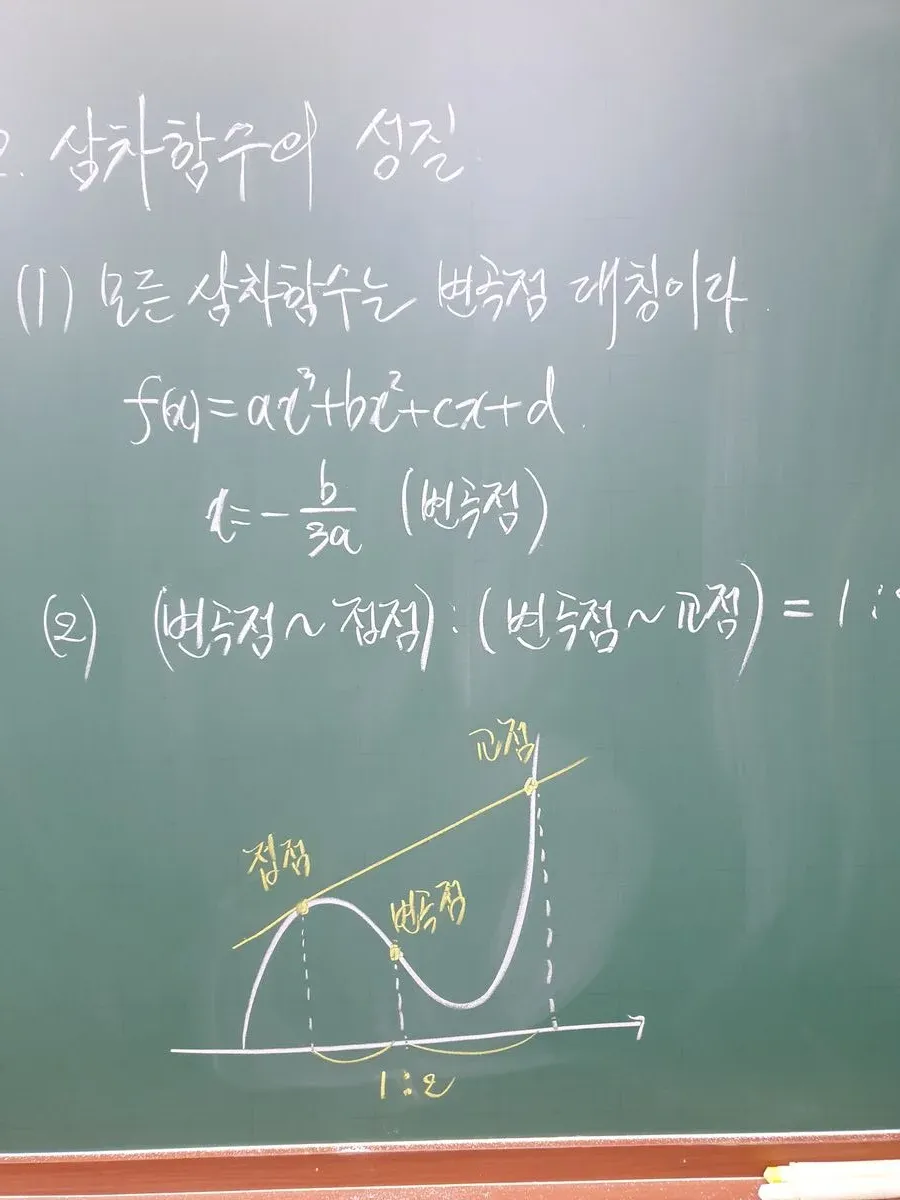 2. 삼차함수의 성질.
(1) 모든 삼차함수는 변곡점 대칭이다.
f(x)=ax³+bx²+cx+d.
x=-b/3a (변곡점)
(2) (변곡점~접점):(변곡점~교점)=1:
교점
접점
변곡점
1:2